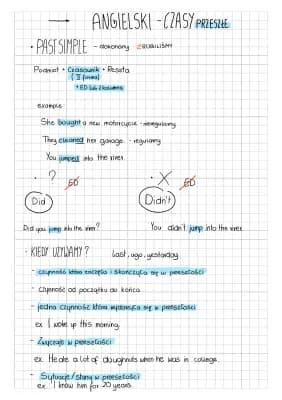 ANGIELSKI - CZASY PRZESZŁE
• PAST SIMPLE - dokonany ZROBILIŚMY
Podmiot + Czasownik + Reszta
(II forma)
+ ED lub 2 kolumna
example:
She bought a new motorcycle - nieregularny
They cleaned her garage. - regularny
You jumped into the river.
• ? • X
ED ED
Did Didn't
Did you jump into the river? You didn't jump into the river.
• KIEDY UŻYWAMY? last, ago, yesterday
- czynność która zaczęła i skończyła się w przeszłości
- Czynność od początku do końca
- jedna czynność która wydarzyła się w przeszłości
ex. I woke up this morning.
- Zwyczaje w przeszłości
ex. He ate a lot of doughnuts when he was in college.
- Sytuacje / stany w przeszłości
ex. I knew him for 20 years.